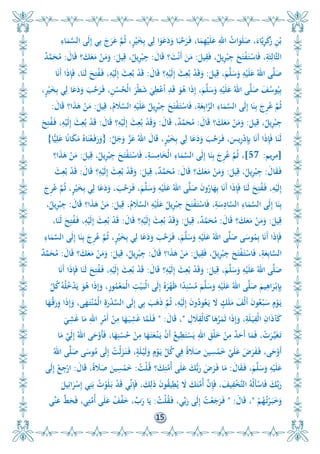 بْنِ زَكَرِيَّاءَ، صَلَوَاتُ اللهِ عَلَيْهِمَا، فَرَحَّبَا وَدَعَوَا لِي بِخَيْرٍ، ثُمَّ عَرَجَ بِي إِلَى السَّمَاءِ
الثَّالِثَةِ، فَاسْتَفْتَحَ جِبْرِيلُ، فَقِيلَ: مَنْ أَنْتَ؟ قَالَ: جِبْرِيلُ، قِيلَ: وَمَنْ مَعَكَ؟ قَالَ: مُحَمَّدٌ
صَلَّى اللهُ عَلَيْهِ وَسَلَّمَ، قِيلَ: وَقَدْ بُعِثَ إِلَيْهِ؟ قَالَ: قَدْ بُعِثَ إِلَيْهِ، فَفُتِحَ لَنَا، فَإِذَا أَنَا
بِيُوسُفَ صَلَّى اللهُ عَلَيْهِ وَسَلَّمَ، إِذَا هُوَ قَدِ اُعْطِيَ شَطْرَ الْحُسْنِ، فَرَحَّبَ وَدَعَا لِي بِخَيْرٍ،
ثُمَّ عَرَجَ بِنَا إِلَى السَّمَاءِ الرَّابِعَةِ، فَاسْتَفْتَحَ جِبْرِيلُ عَلَيْهِ السَّلَامُ، قِيلَ: مَنْ هَذَا؟ قَالَ:
جِبْرِيلُ، قِيلَ: وَمَنْ مَعَكَ؟ قَالَ: مُحَمَّدٌ، قَالَ: وَقَدْ بُعِثَ إِلَيْهِ؟ قَالَ: قَدْ بُعِثَ إِلَيْهِ، فَفُتِحَ
لَنَا فَإِذَا أَنَا بِإِدْرِيسَ، فَرَحَّبَ وَدَعَا لِي بِخَيْرٍ، قَالَ اللهُ عَزَّ وَجَلَّ: {وَرَفَعْنَاهُ مَكَانًا عَلِيًّا}
[مريم: 57]، ثُمَّ عَرَجَ بِنَا إِلَى السَّمَاءِ الْخَامِسَةِ، فَاسْتَفْتَحَ جِبْرِيلُ، قِيلَ: مَنْ هَذَا؟
فَقَالَ: جِبْرِيلُ، قِيلَ: وَمَنْ مَعَكَ؟ قَالَ: مُحَمَّدٌ، قِيلَ: وَقَدْ بُعِثَ إِلَيْهِ؟ قَالَ: قَدْ بُعِثَ
إِلَيْهِ، فَفُتِحَ لَنَا فَإِذَا أَنَا بِهَارُونَ صَلَّى اللهُ عَلَيْهِ وَسَلَّمَ، فَرَحَّبَ، وَدَعَا لِي بِخَيْرٍ، ثُمَّ عَرَجَ
بِنَا إِلَى السَّمَاءِ السَّادِسَةِ، فَاسْتَفْتَحَ جِبْرِيلُ عَلَيْهِ السَّلَامُ، قِيلَ: مَنْ هَذَا؟ قَالَ: جِبْرِيلُ،
قِيلَ: وَمَنْ مَعَكَ؟ قَالَ: مُحَمَّدٌ، قِيلَ: وَقَدْ بُعِثَ إِلَيْهِ؟ قَالَ: قَدْ بُعِثَ إِلَيْهِ، فَفُتِحَ لَنَا،
فَإِذَا أَنَا بِمُوسَى صَلَّى اللهُ عَلَيْهِ وَسَلَّمَ، فَرَحَّبَ وَدَعَا لِي بِخَيْرٍ، ثُمَّ عَرَجَ بِنَا إِلَى السَّمَاءِ
السَّابِعَةِ، فَاسْتَفْتَحَ جِبْرِيلُ، فَقِيلَ: مَنْ هَذَا؟ قَالَ: جِبْرِيلُ، قِيلَ: وَمَنْ مَعَكَ؟ قَالَ: مُحَمَّدٌ
صَلَّى اللهُ عَلَيْهِ وَسَلَّمَ، قِيلَ: وَقَدْ بُعِثَ إِلَيْهِ؟ قَالَ: قَدْ بُعِثَ إِلَيْهِ، فَفُتِحَ لَنَا فَإِذَا أَنَا
بِإِبْرَاهِيمَ صَلَّى اللهُ عَلَيْهِ وَسَلَّمَ مُسْنِدًا ظَهْرَهُ إِلَى الْبَيْتِ الْمَعْمُورِ، وَإِذَا هُوَ يَدْخُلُهُ كُلَّ
يَوْمٍ سَبْعُونَ أَلْفَ مَلَكٍ لَا يَعُودُونَ إِلَيْهِ، ثُمَّ ذَهَبَ بِي إِلَى السِّدْرَةِ الْمُنْتَهَى، وَإِذَا وَرَقُهَا
كَآذَانِ الْفِيَلَةِ، وَإِذَا ثَمَرُهَا كَالْقِلَالِ "، قَالَ: " فَلَمَّا غَشِيَهَا مِنْ أَمْرِ اللهِ مَا غَشِيَ
تَغَيَّرَتْ، فَمَا أَحَدٌ مِنْ خَلْقِ اللهِ يَسْتَطِيعُ أَنْ يَنْعَتَهَا مِنْ حُسْنِهَا، فَأَوْحَى اللهُ إِلَيَّ مَا
أَوْحَى، فَفَرَضَ عَلَيَّ خَمْسِينَ صَلَاةً فِي كُلِّ يَوْمٍ وَلَيْلَةٍ، فَنَزَلْتُ إِلَى مُوسَى صَلَّى اللهُ
عَلَيْهِ وَسَلَّمَ، فَقَالَ: مَا فَرَضَ رَبُّكَ عَلَى أُمَّتِكَ؟ قُلْتُ: خَمْسِينَ صَلَاةً، قَالَ: ارْجِعْ إِلَى
رَبِّكَ فَاسْأَلْهُ التَّخْفِيفَ، فَإِنَّ أُمَّتَكَ لَا يُطِيقُونَ ذَلِكَ، فَإِنِّي قَدْ بَلَوْتُ بَنِي إِسْرَائِيلَ
وَخَبَرْتُهُمْ "، قَالَ: " فَرَجَعْتُ إِلَى رَبِّي، فَقُلْتُ: يَا رَبِّ، خَفِّفْ عَلَى أُمَّتِي، فَحَطَّ عَنِّي
15